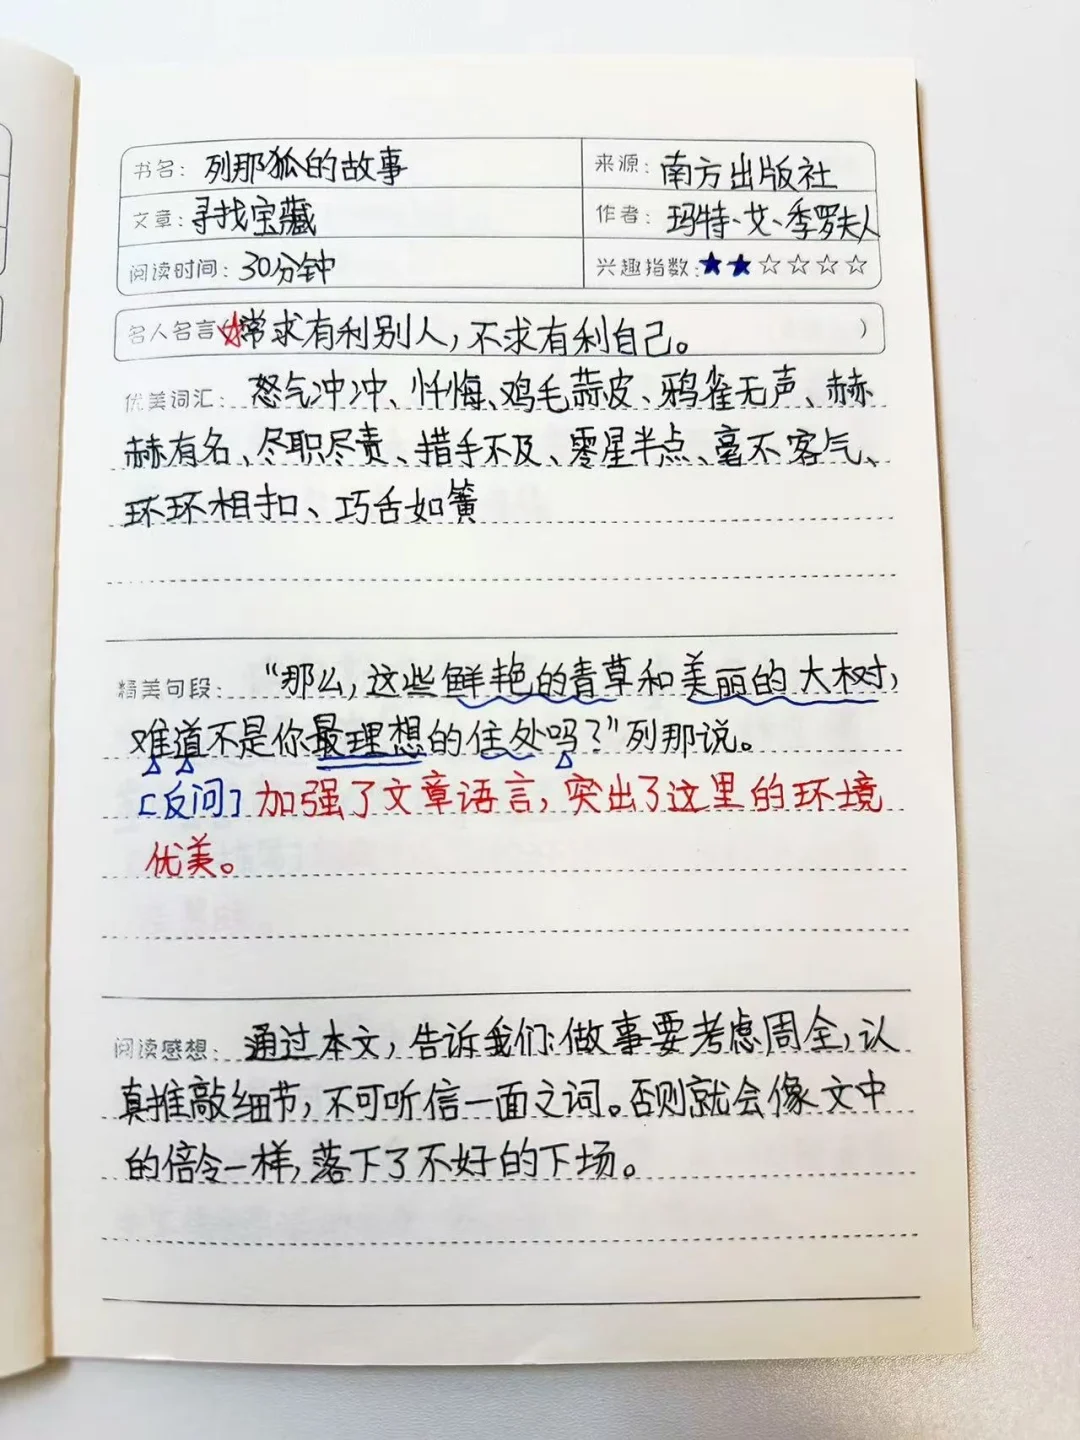 书名: 列那狐的故事 来源: 南方出版社
文章: 寻找宝藏 作者: 玛特、艾、季罗夫人
阅读时间: 30分钟 兴趣指数: ★★☆☆☆☆
名人名言(☆常求有利别人,不求有利自己。)
优美词汇: 怒气冲冲、忏悔、鸡毛蒜皮、鸦雀无声、赫
赫有名、尽职尽责、措手不及、零星半点、毫不客气、
环环相扣、巧舌如簧
精美句段: “那么,这些鲜艳的青草和美丽的大树,
难道不是你最理想的住处吗?”列那说。
[反问]加强了文章语言,突出了这里的环境
优美。
阅读感想: 通过本文,告诉我们:做事要考虑周全,认
真推敲细节,不可听信一面之词。否则就会像文中
的倍令一样,落下了不好的下场。